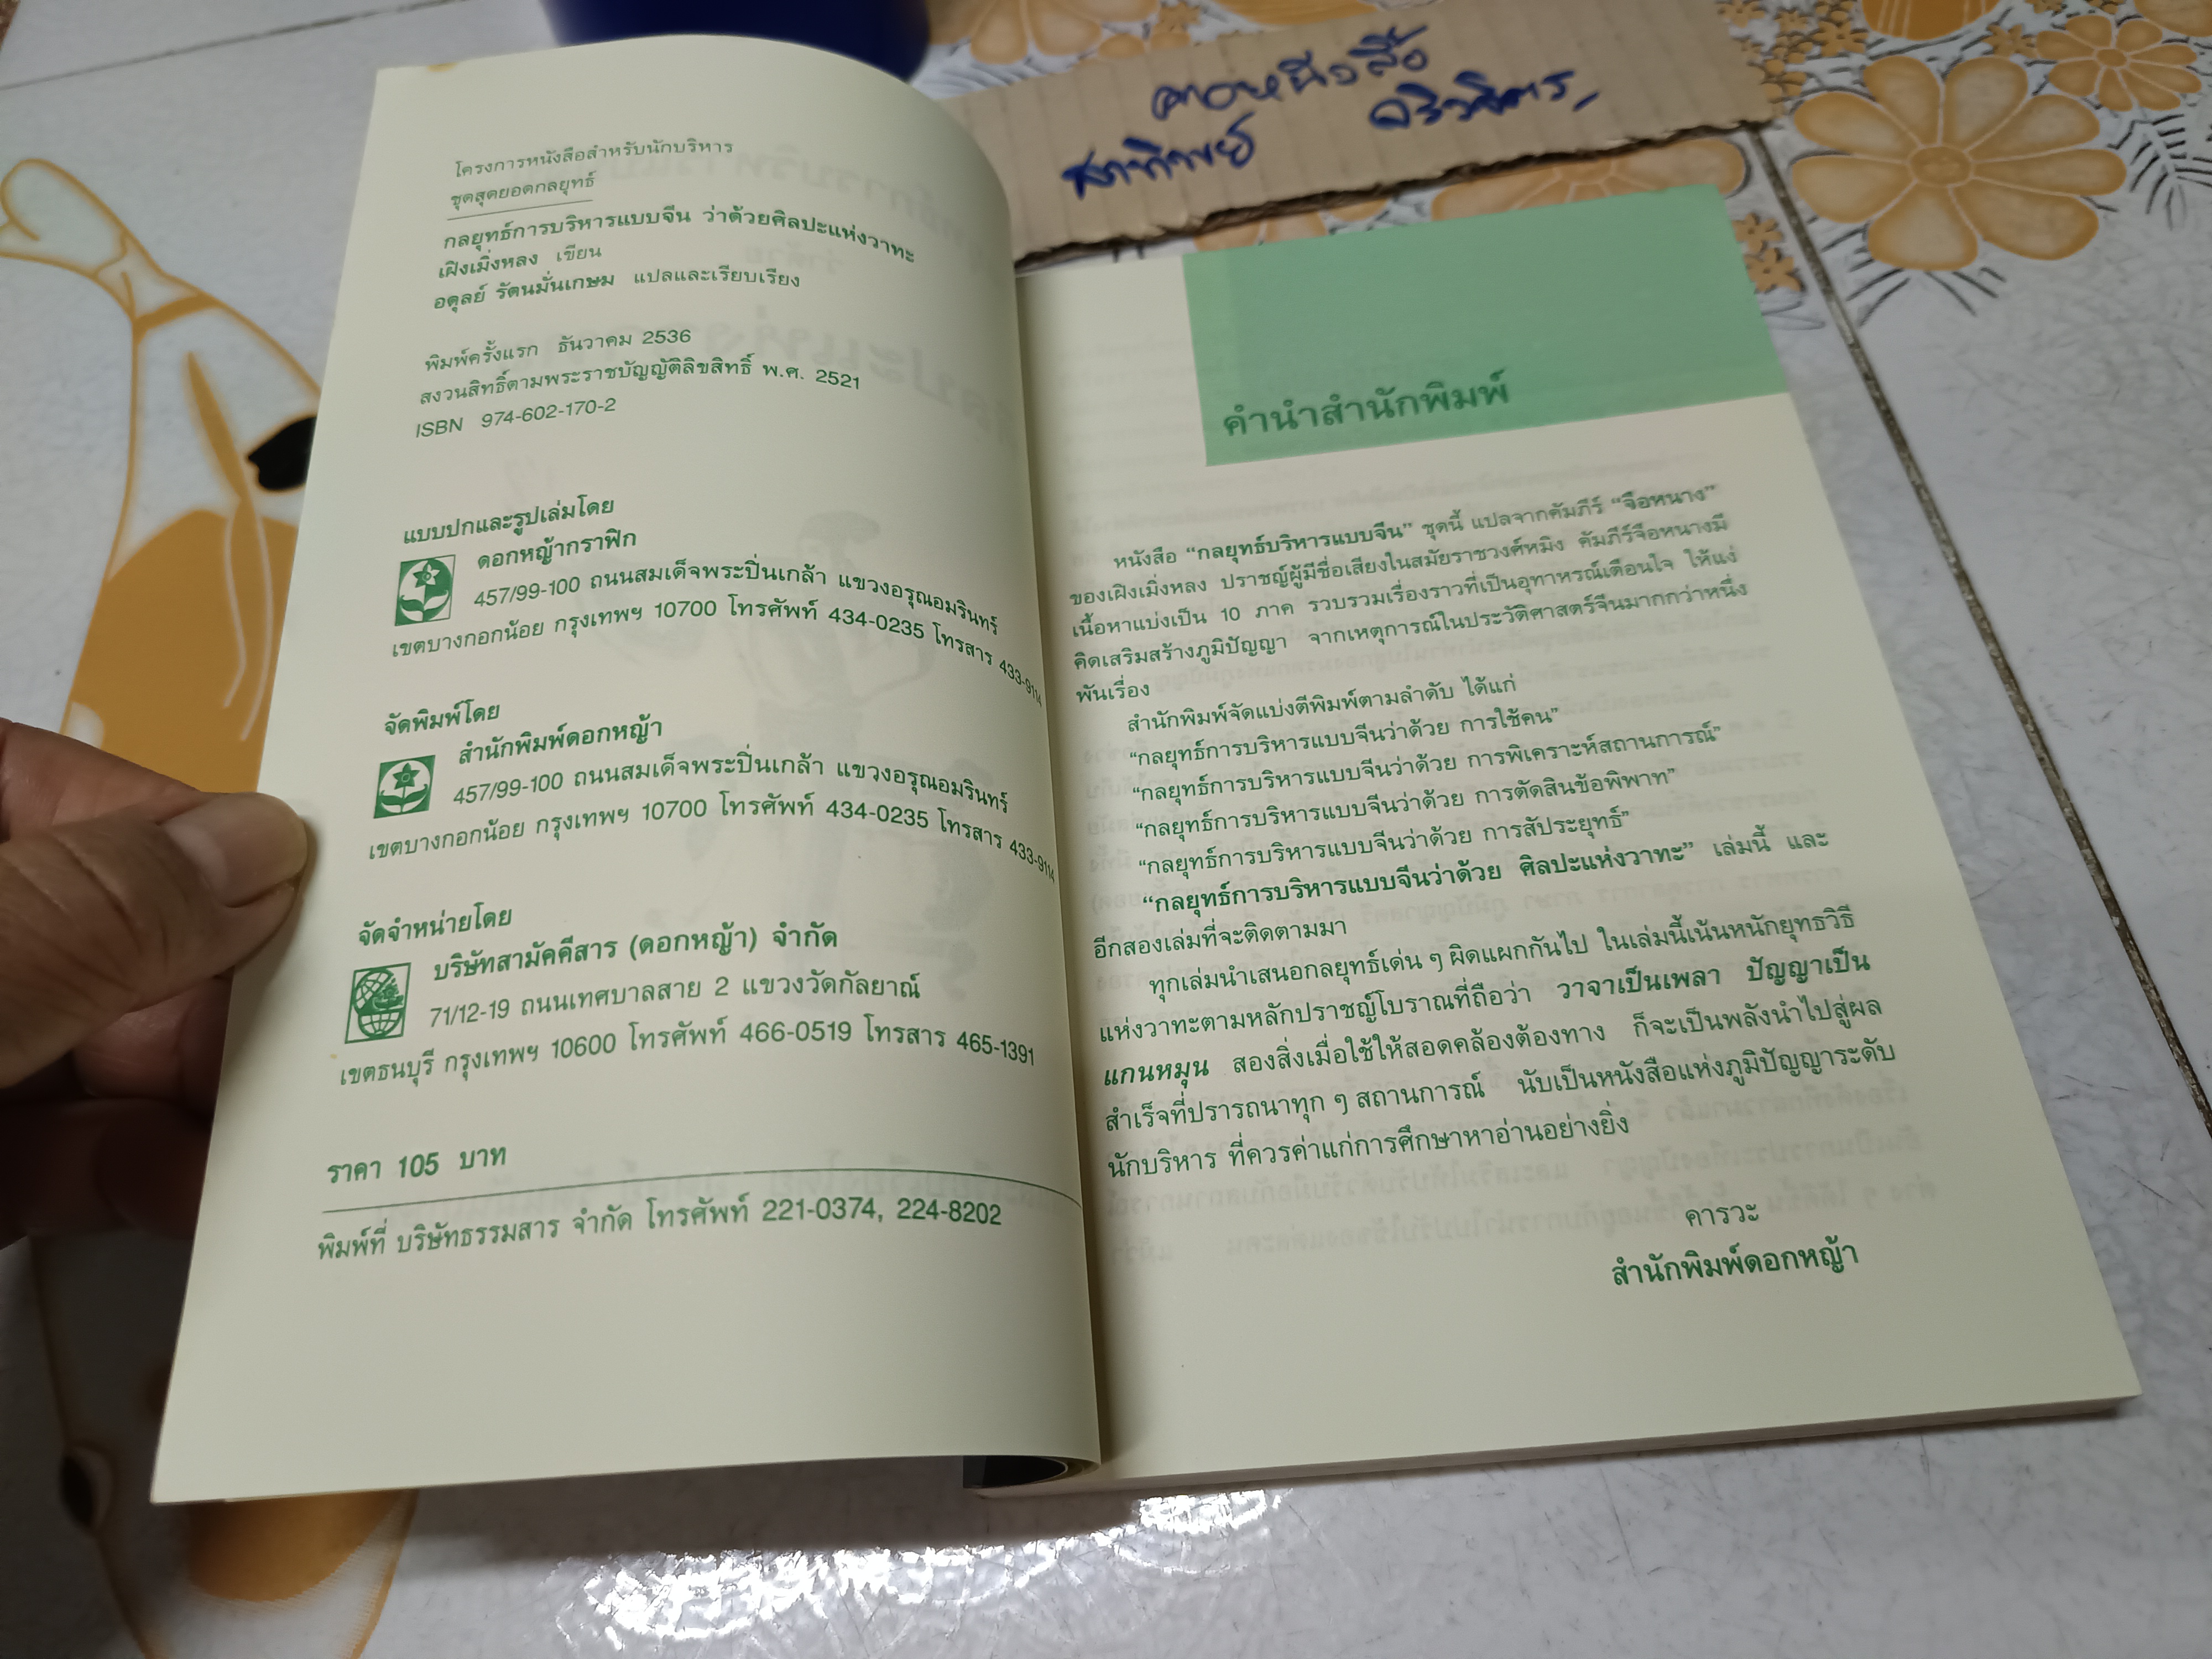 โครงการหนังสือสำหรับนักบริหาร
ชุดสุดยอดกลยุทธ์
กลยุทธ์การบริหารแบบจีน ว่าด้วยศิลปะแห่งวาทะ
เฝิงเมิ่งหลง เขียน
อดุลย์ รัตนมั่นเกษม แปลและเรียบเรียง
พิมพ์ครั้งแรก ธันวาคม 2536
สงวนสิทธิ์ตามพระราชบัญญัติลิขสิทธิ์ พ.ศ. 2521
ISBN 974-602-170-2
แบบปกและรูปเล่มโดย
ดอกหญ้ากราฟิก
457/99-100 ถนนสมเด็จพระปิ่นเกล้า แขวงอรุณอมรินทร์
เขตบางกอกน้อย กรุงเทพฯ 10700 โทรศัพท์ 434-0235 โทรสาร 433-9114
จัดพิมพ์โดย
สำนักพิมพ์ดอกหญ้า
457/99-100 ถนนสมเด็จพระปิ่นเกล้า แขวงอรุณอมรินทร์
เขตบางกอกน้อย กรุงเทพฯ 10700 โทรศัพท์ 434-0235 โทรสาร 433-9114
จัดจำหน่ายโดย
บริษัทสามัคคีสาร (ดอกหญ้า) จำกัด
71/12-19 ถนนเทศบาลสาย 2 แขวงวัดกัลยาณ์
เขตธนบุรี กรุงเทพฯ 10600 โทรศัพท์ 466-0519 โทรสาร 465-1391
ราคา 105 บาท
พิมพ์ที่ บริษัทธรรมสาร จำกัด โทรศัพท์ 221-0374, 224-8202
คำนำสำนักพิมพ์
หนังสือ “กลยุทธ์บริหารแบบจีน” ชุดนี้ แปลจากคัมภีร์ “จือหนาง”
ของเฝิงเมิ่งหลง ปราชญ์ผู้มีชื่อเสียงในสมัยราชวงศ์หมิง คัมภีร์จือหนางมี
เนื้อหาแบ่งเป็น 10 ภาค รวบรวมเรื่องราวที่เป็นอุทาหรณ์เตือนใจ ให้แง่
คิดเสริมสร้างภูมิปัญญา จากเหตุการณ์ในประวัติศาสตร์จีนมากกว่าหนึ่ง
พันเรื่อง
สำนักพิมพ์จัดแบ่งตีพิมพ์ตามลำดับ ได้แก่
“กลยุทธ์การบริหารแบบจีนว่าด้วย การใช้คน”
“กลยุทธ์การบริหารแบบจีนว่าด้วย การพิเคราะห์สถานการณ์”
“กลยุทธ์การบริหารแบบจีนว่าด้วย การตัดสินข้อพิพาท”
“กลยุทธ์การบริหารแบบจีนว่าด้วย การสัประยุทธ์”
“กลยุทธ์การบริหารแบบจีนว่าด้วย ศิลปะแห่งวาทะ” เล่มนี้ และ
อีกสองเล่มที่จะติดตามมา
ทุกเล่มนำเสนอกลยุทธ์เด่น ๆ ผิดแผกกันไป ในเล่มนี้เน้นหนักยุทธวิธี
แห่งวาทะตามหลักปราชญ์โบราณที่ถือว่า วาจาเป็นเพลา ปัญญาเป็น
แกนหมุน สองสิ่งเมื่อใช้ให้สอดคล้องต้องทาง ก็จะเป็นพลังนำไปสู่ผล
สำเร็จที่ปรารถนาทุก ๆ สถานการณ์ นับเป็นหนังสือแห่งภูมิปัญญาระดับ
นักบริหาร ที่ควรค่าแก่การศึกษาหาอ่านอย่างยิ่ง
คารวะ
สำนักพิมพ์ดอกหญ้า